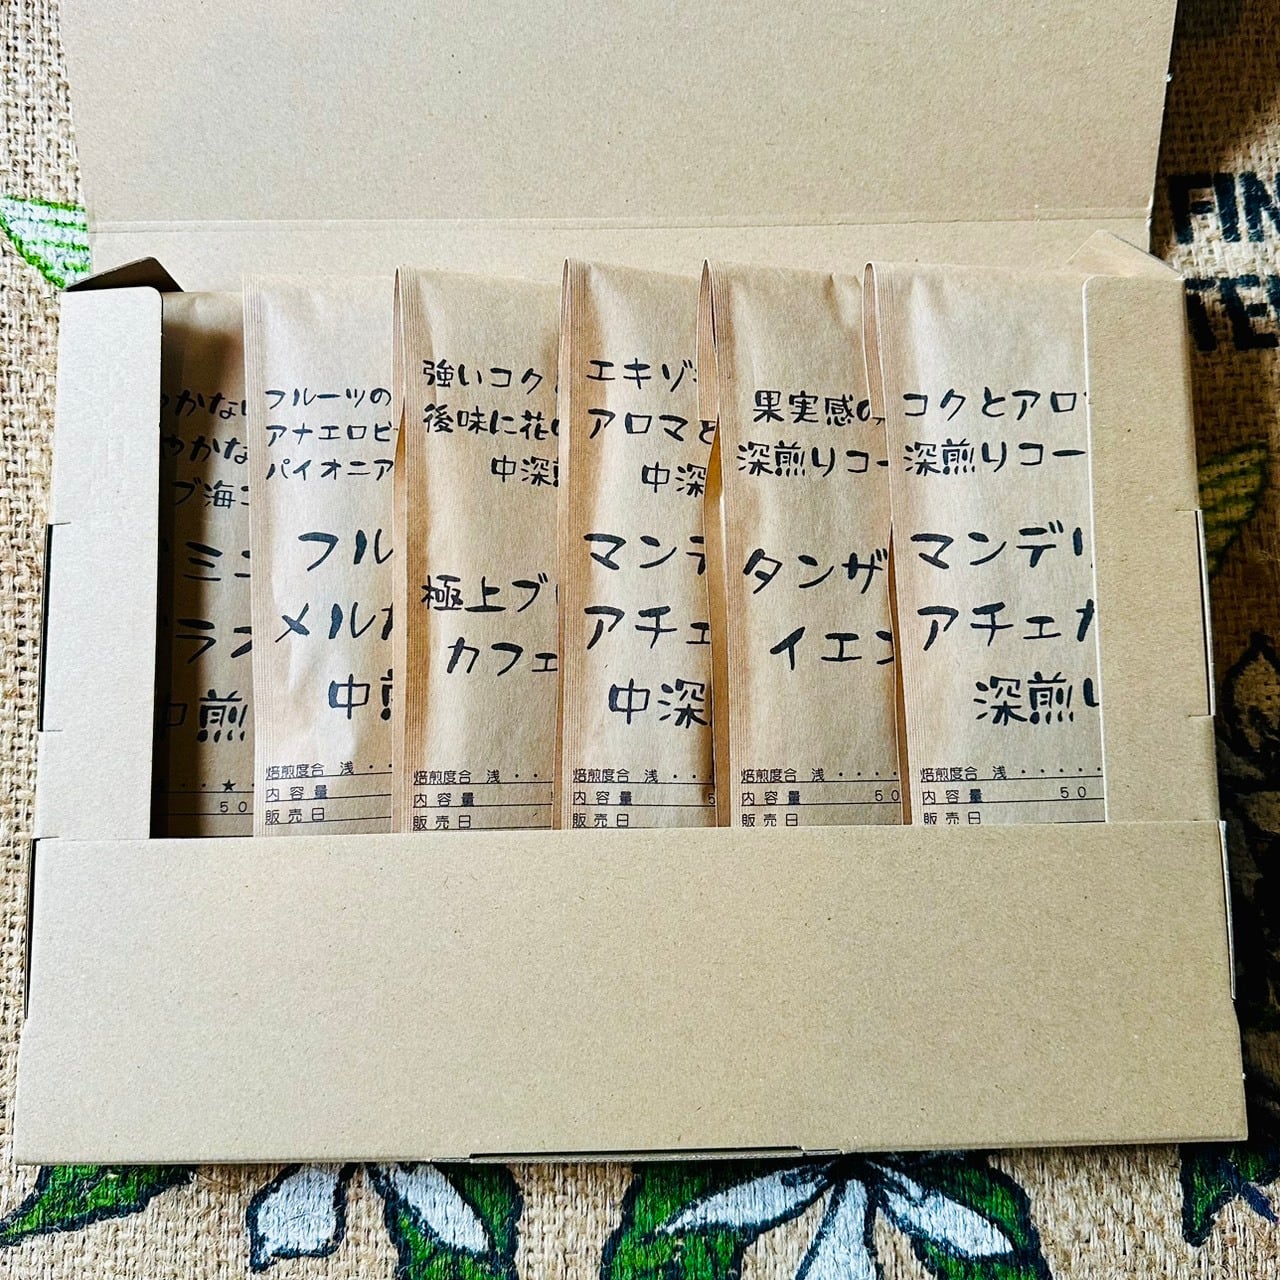 かない
やかな
ブ海
ミニ
ラ
中煎
★
50
フルーツの
アナエロビ
パイオニア
フル
メルカ
中煎
焙煎度合 浅・・
内容量
販売日
強いコク
後味に花
中深煎
極上ブ
カフェ
焙煎度合 浅・・・
内容量
販売日
エキゾ
アロマと
中深
マンデ
アチェ
中深
焙煎度合 浅・・・
内容量
販売日
果実感の
深煎りコー
タンザ
イエン
焙煎度合 浅・・・・
内容量 50
販売日
コクとアロ
深煎りコー
マンデリ
アチェガ
深煎り
焙煎度合 浅・・・・・
内容量 50
販売日
FIN
TE